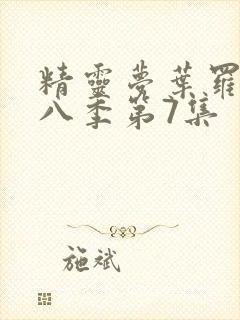 精靈夢葉羅
八季第7集
施斌